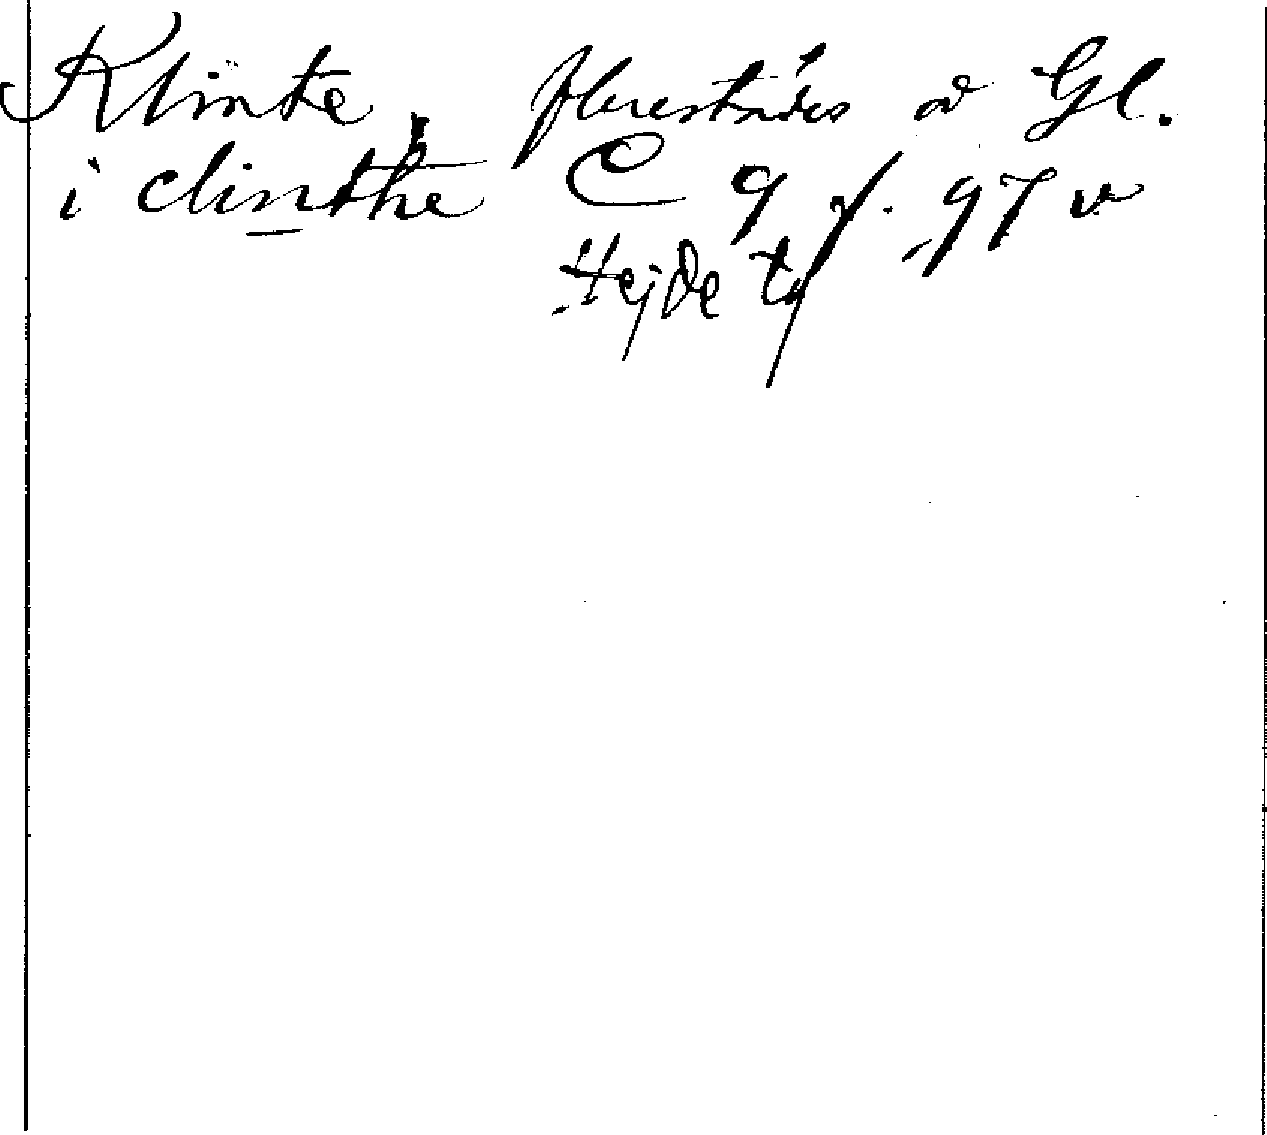 Klinte, flerstädes o Gl.
i clinthe C 9 f. 97 v
Hejde tg